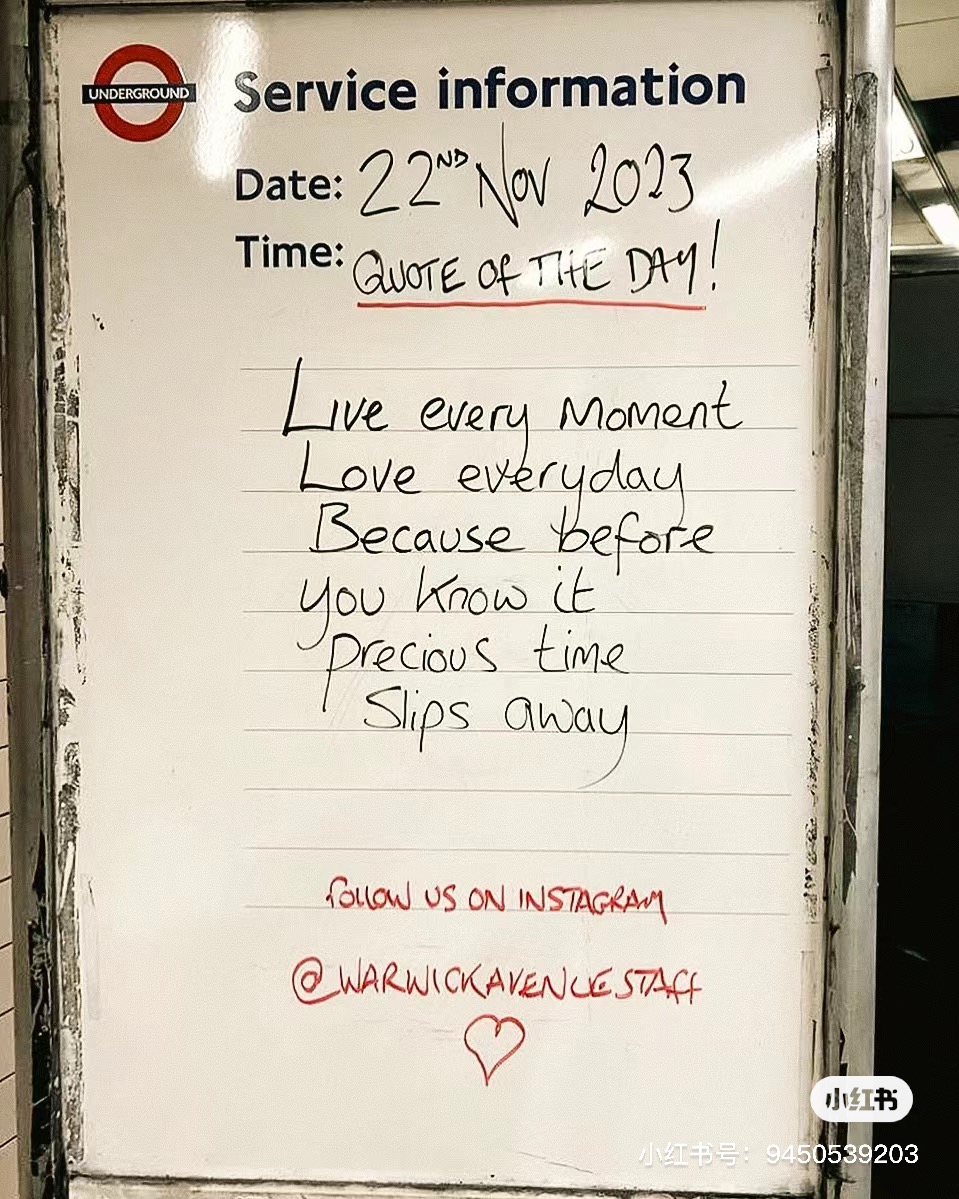 UNDERGROUND
Service information
Date: 22ND Nov 2023
Time: QUOTE OF THE DAY!
Live every Moment
Love everyday
Because before
you know it
precious time
Slips away
FOLLOW US ON INSTAGRAM
@WARWICKAVENUESTAFF
小红书
小红书号：9450539203